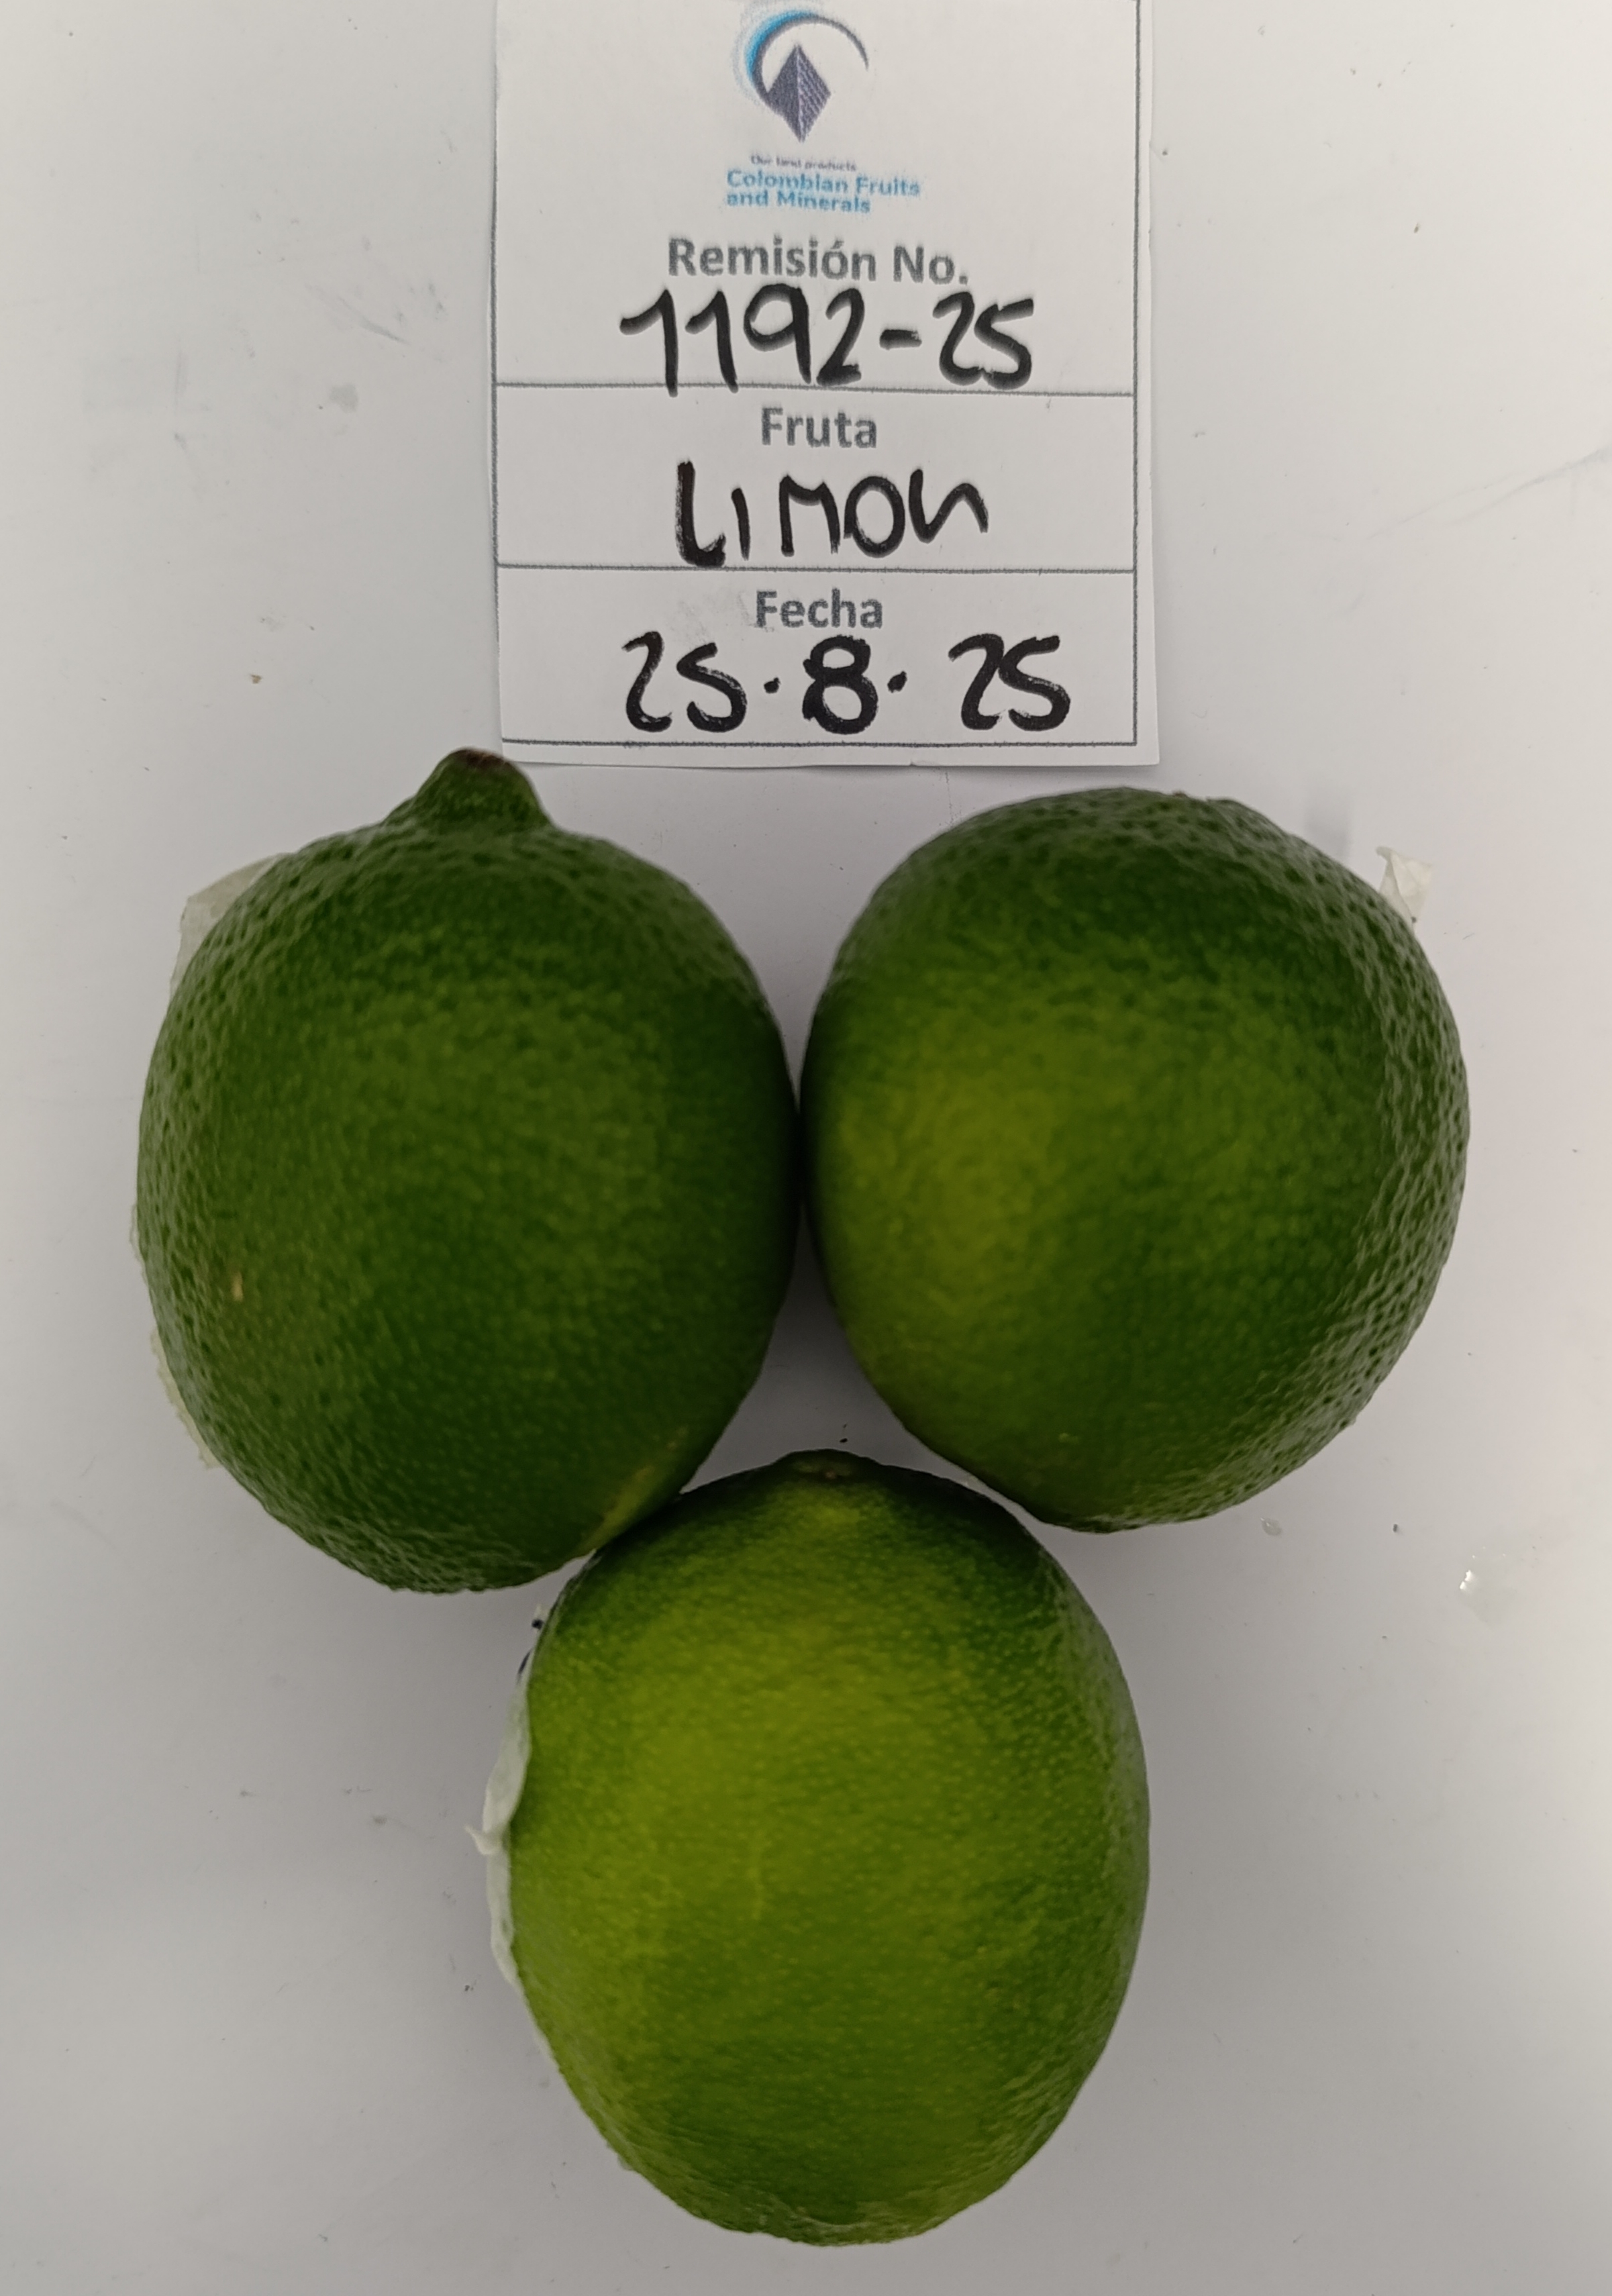 Our land products
Colombian Fruits
and Minerals
Remisión No.
1192-25
Fruta
LIMON
Fecha
25.8.25